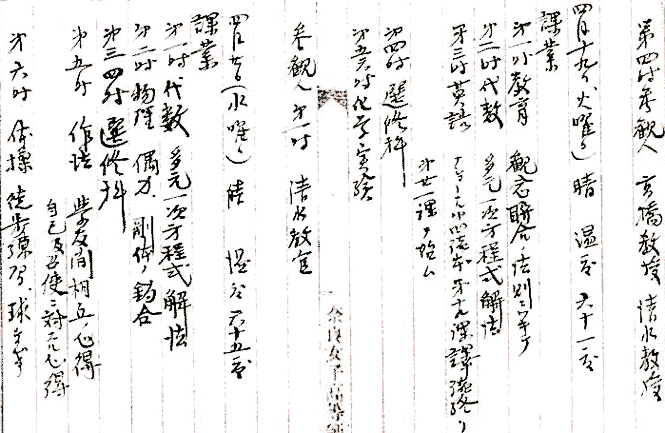 第四時参観人 高橋教授 清水教授
四月十九日(火曜日) 晴 温度 六十一度
課業
第一時教育 観念聯合ノ法則ニツキテ
第二時代数 多元一次方程式解法
第三時英語 ナショナル 第十九課譯読終リ
第廿一課ヲ始ム
第四時 選修科
第五六時化学実験
参観人 第一時 清水教官
四月廿日(水曜日) 晴 温度六十五度
課業
第一時代数 多元一次方程式解法
第二時物理 偶力、剛体ノ釣合
第三四時 選修科
第五時 作法 学友間相互ノ心得
自己及召使ニ対スル心得
第六時 体操 徒歩練習、球
奈良女子高等師